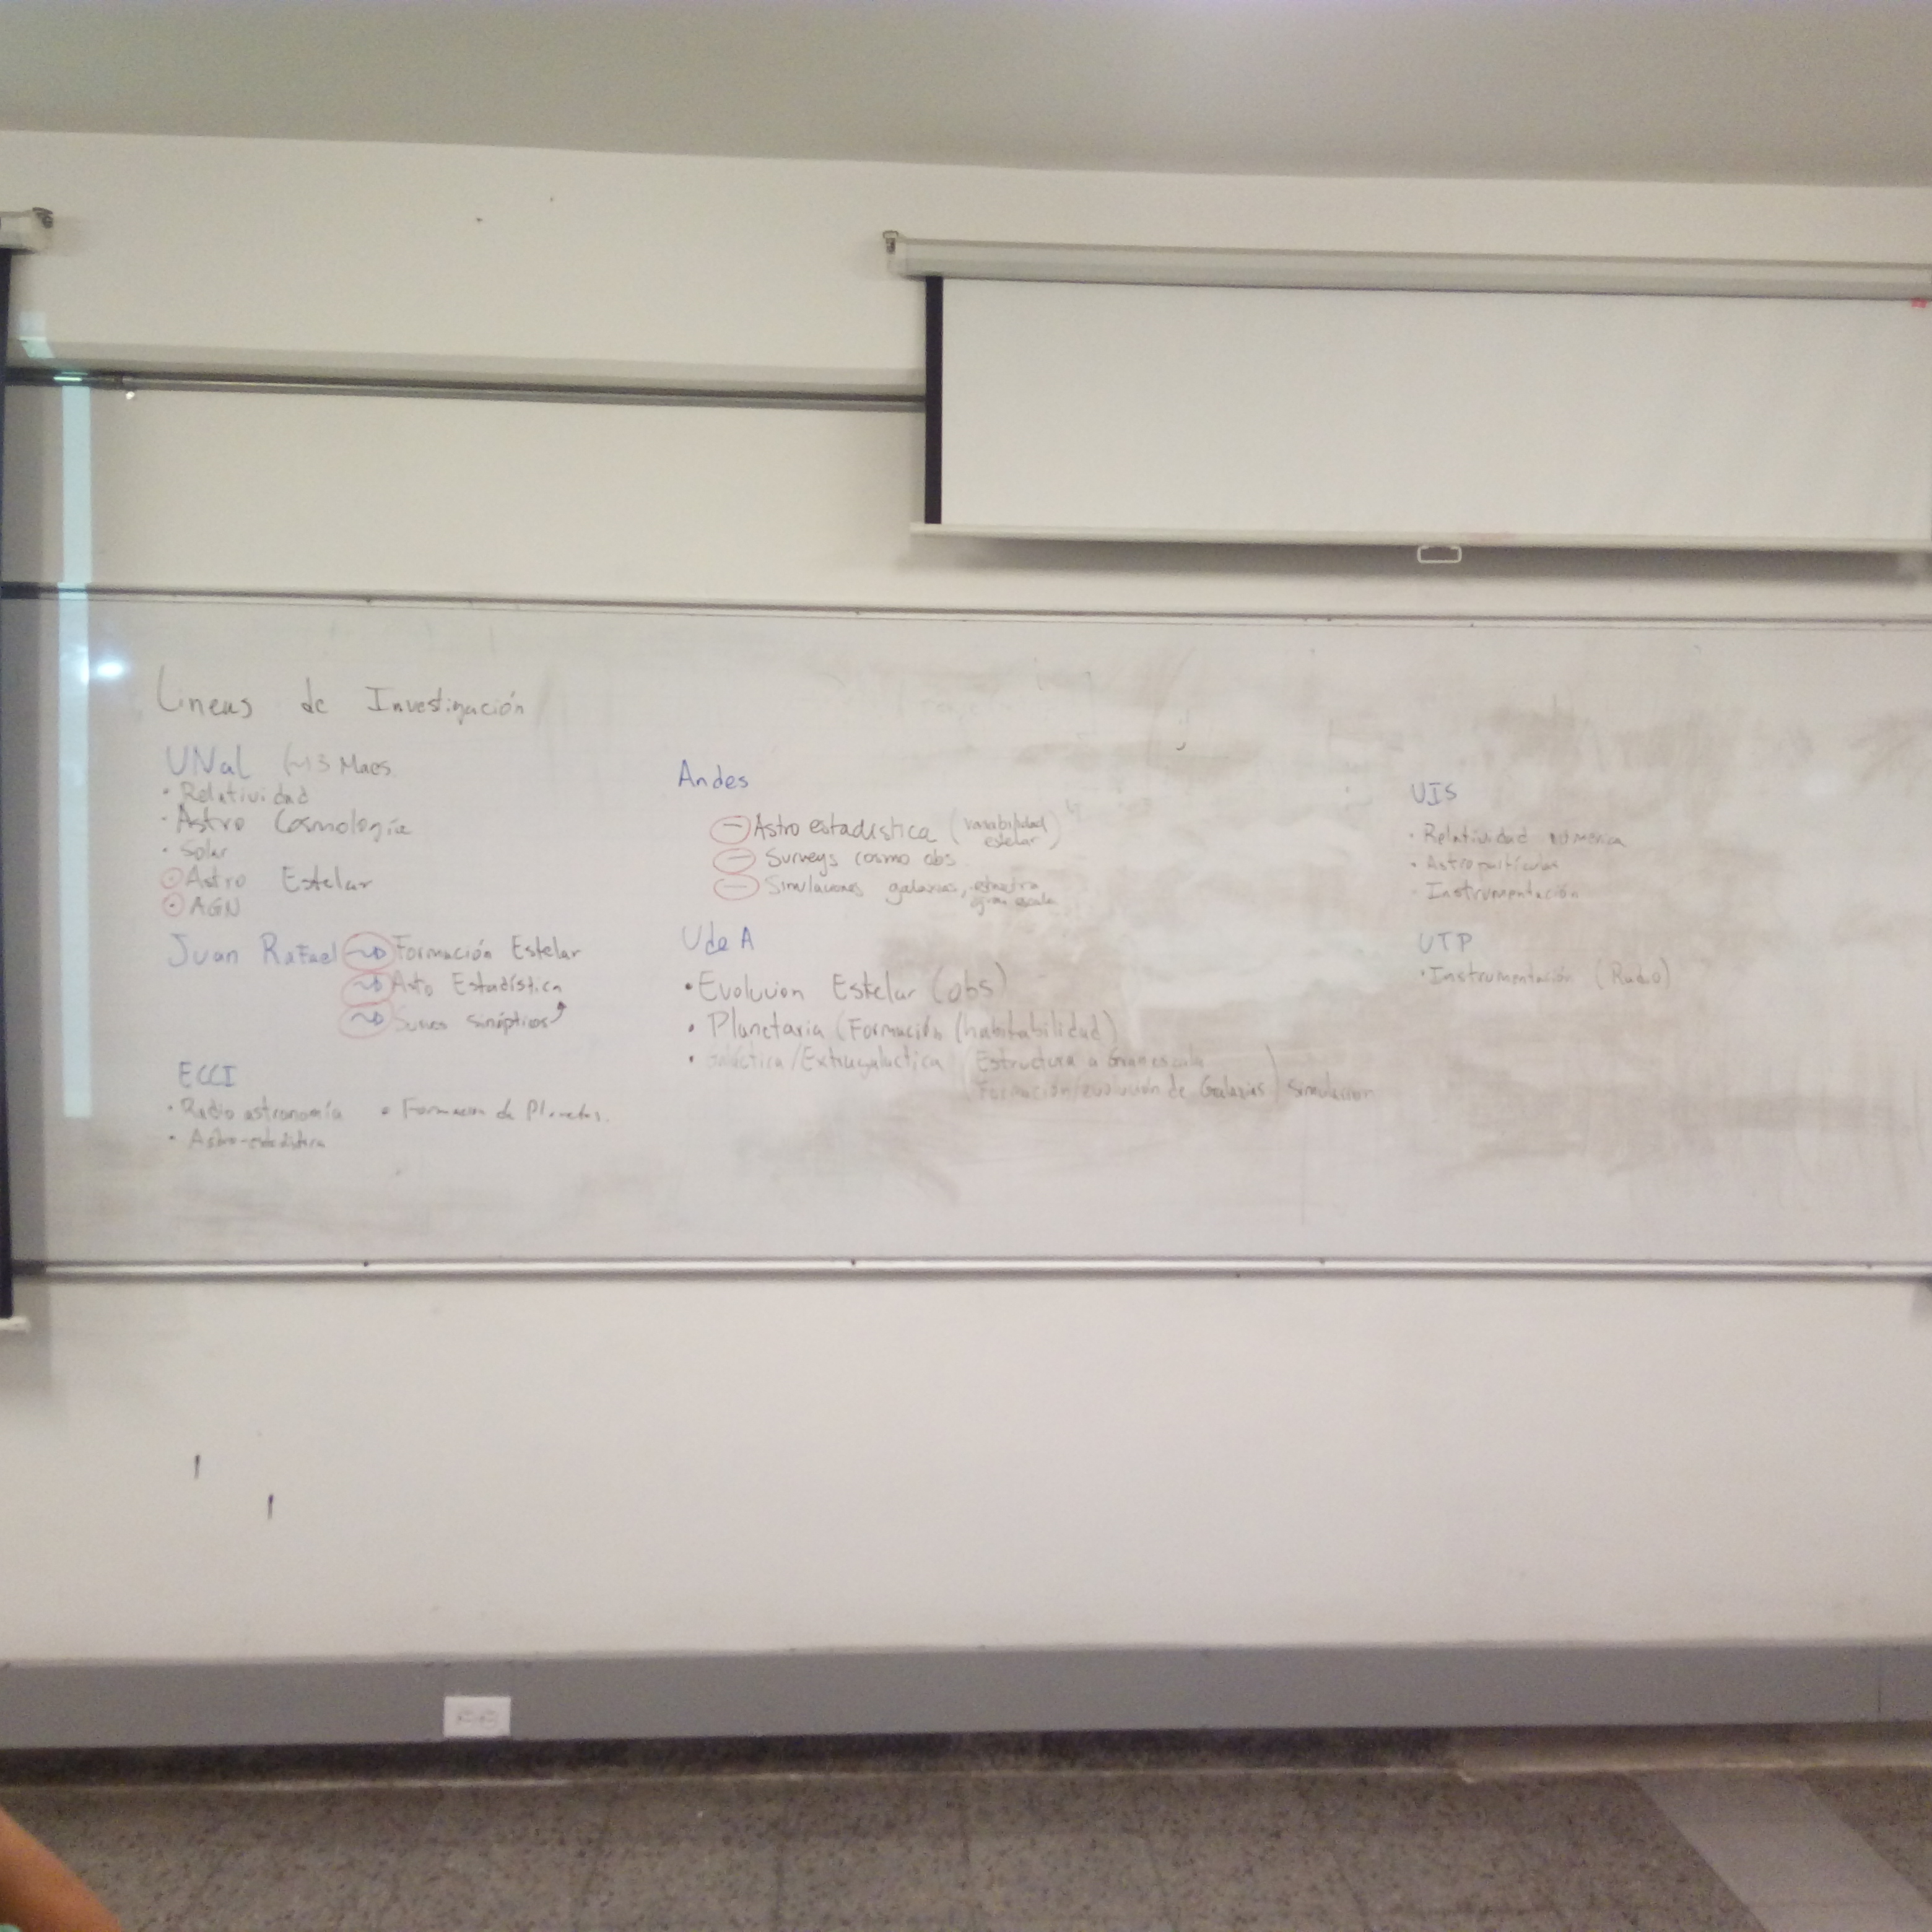 Lineas de Investigación
UNal (~13 Maes.
• Relatividad
• Astro Cosmología
• Solar
• Astro Estelar
• AGN
Juan Rafael ~> Formación Estelar
~> Astro Estadística
~> sinópticos
ECCI
• Radio astronomía • Formacion de Planetas.
• Astro-estadística
Andes
- Astro estadistica (variabilidad estelar)
- Surveys cosmo obs
- Simulaciones galaxias, gran escala
U de A
• Evolucion Estelar (obs)
• Planetaria (Formación (habitabilidad)
• Galáctica/Extragalactica Estructura a Gran escala
Formación/evolución de Galaxias) Simulacion
UIS
• Relatividad numérica
• Astropartículas
• Instrumentación
UTP
• Instrumentación (Radio)